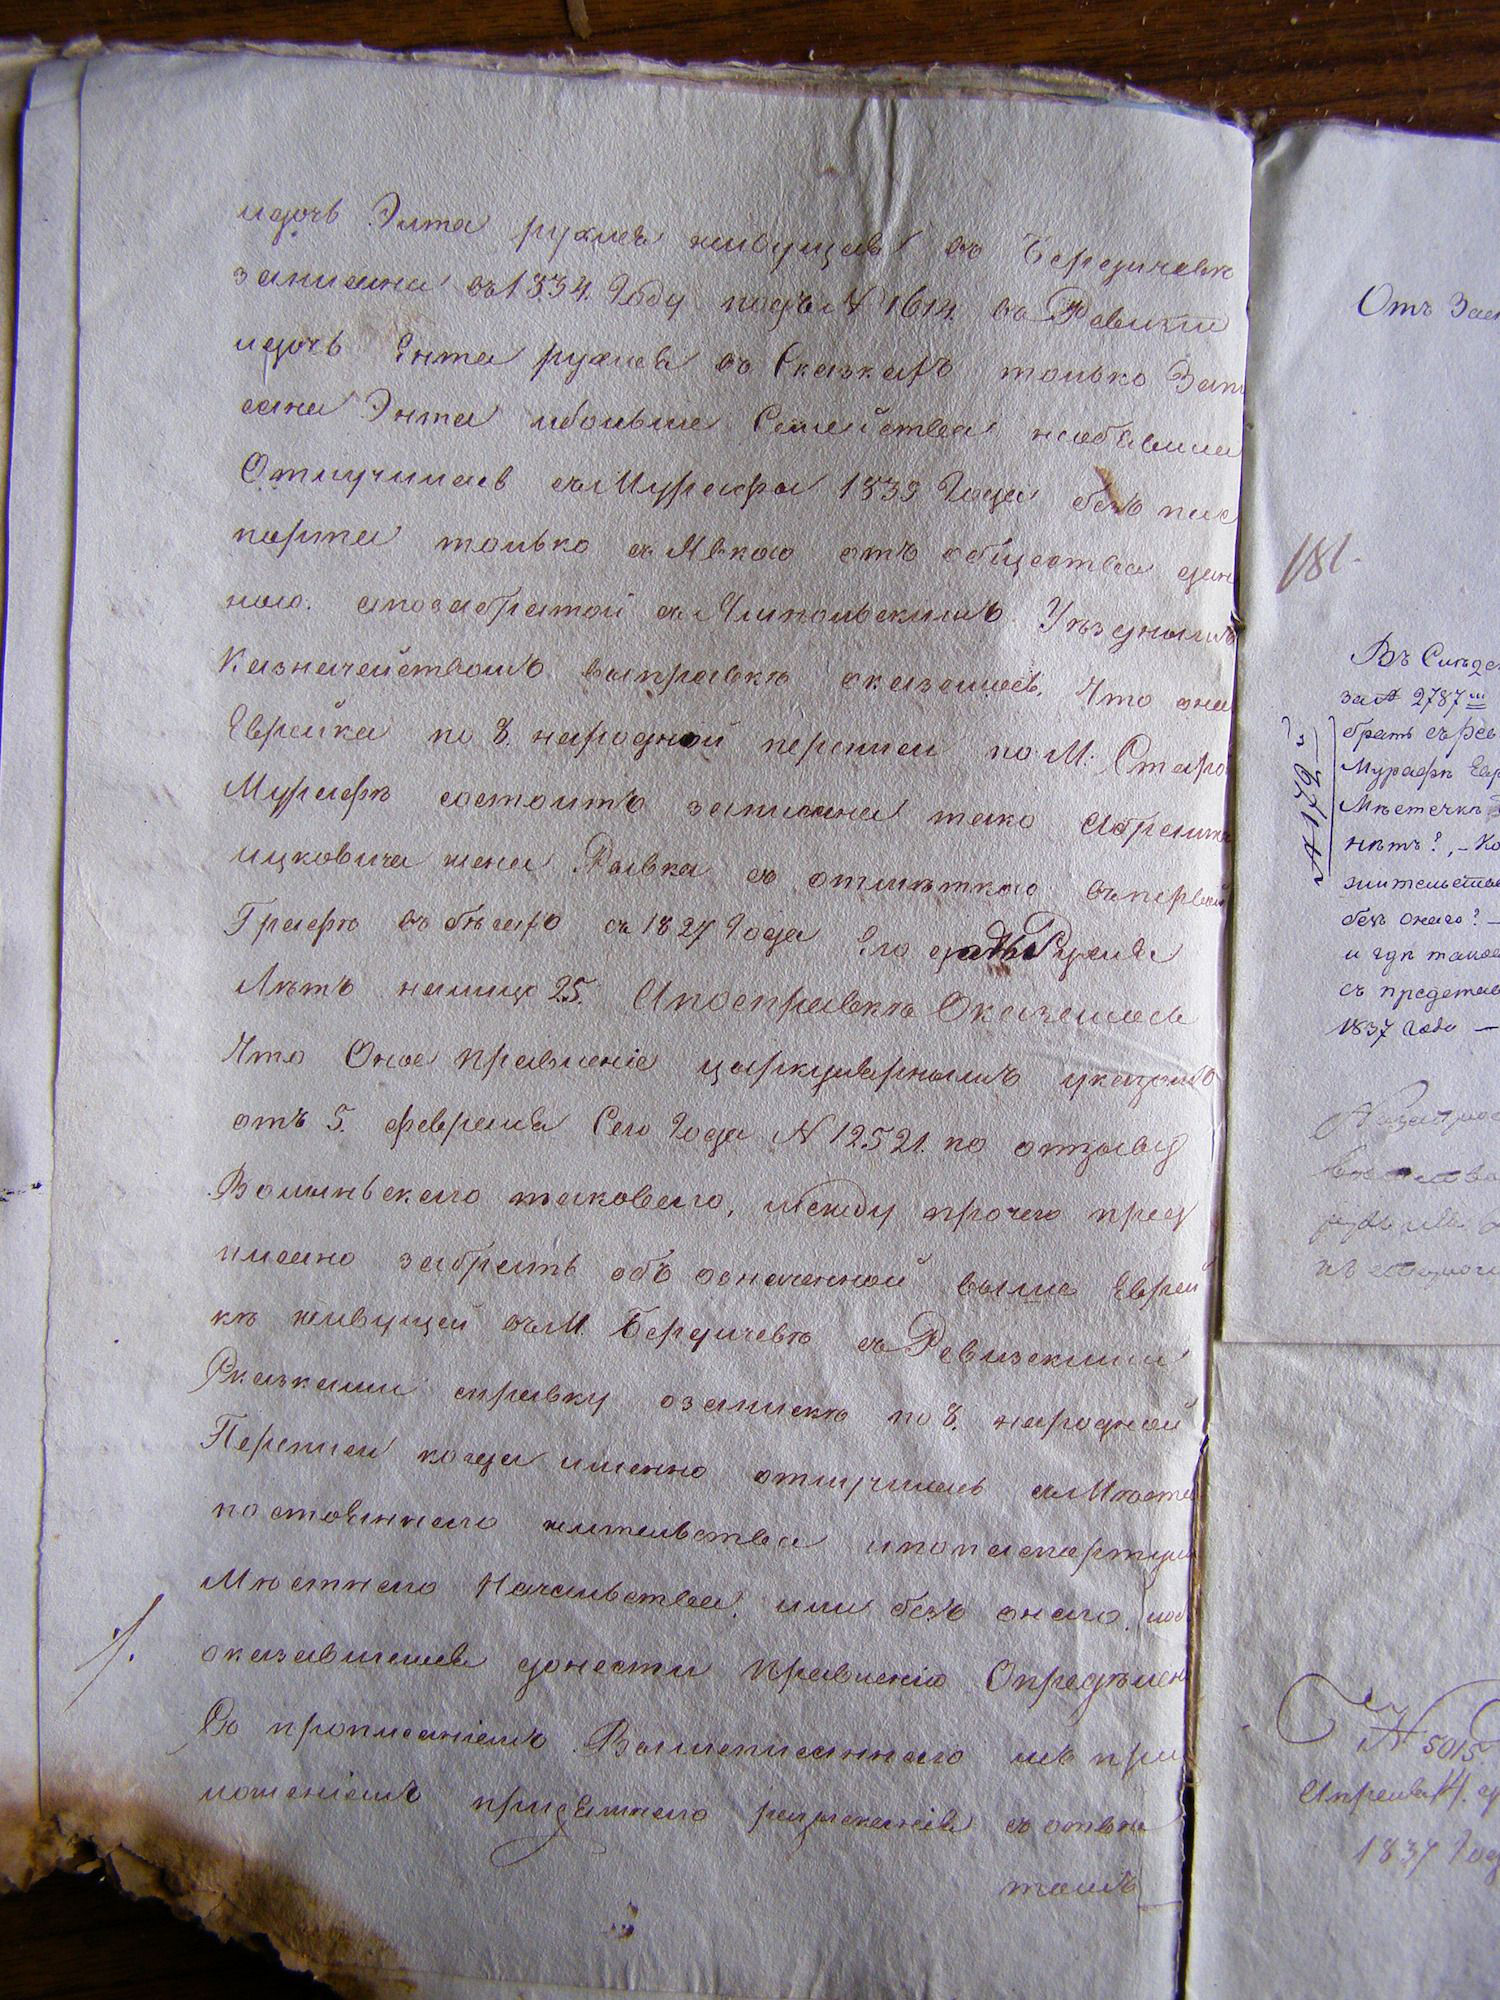 идочь Элта рухля живущая въ Бердичевѣ
записана въ 1834. Году подъ № 1614. въ Ревизіи
идочь Ента рухля въ Сказкахъ только Запи
сана Энта ибольше Семейства необъявила
Отлучилась съ Мурафы 1833 Года безъ пас
порта только съ Явкою отъ общества дан
ною. апозабратой съ Ямпольскимъ Уѣзднымъ
Казначействомъ выправкѣ оказалось, Что она
Еврейка по 8. народной переписи по М: Старо
Мурафѣ состоитъ записана тако Абрамъ
ицковича жена Рывка съ отмѣткою въпервой
Графѣ въ бѣгахъ съ 1827 Года Его дочь Рухля
Лѣтъ налицо 25. Апосправкѣ Оказалось
Что Оное правленіе циркулярнымъ указомъ
отъ 5. февраля Сего Года № 12521. по отзыву
Волынскаго таковаго, между прочего пред
писано забрать объ означенной выше Еврей
кѣ живущей въ М. Бердичевѣ съ Ревизскими
Сказками справку озапискѣ по 8. народной
Переписи когда именно отлучилась съ Мѣста
постояннаго жительства ипопаспортули
Мѣстнаго Начальства, или безъ онаго, иоб
оказавшемся донести Правленію Опредѣлен
Съ прописаніемъ Вышеписаннаго
ложеніемъ розысканія съ отвѣ
томъ
Отъ
181.
Въ Слѣдс
за № 2787
брать съ рев
Мурафѣ Евр
Мѣстечкѣ
нѣтъ?, – Ко
жительства
безъ онаго? –
и гдѣ
съ представ
1837 года –
№ 1762
№ 5015
Апреля 14. д
1837 Год